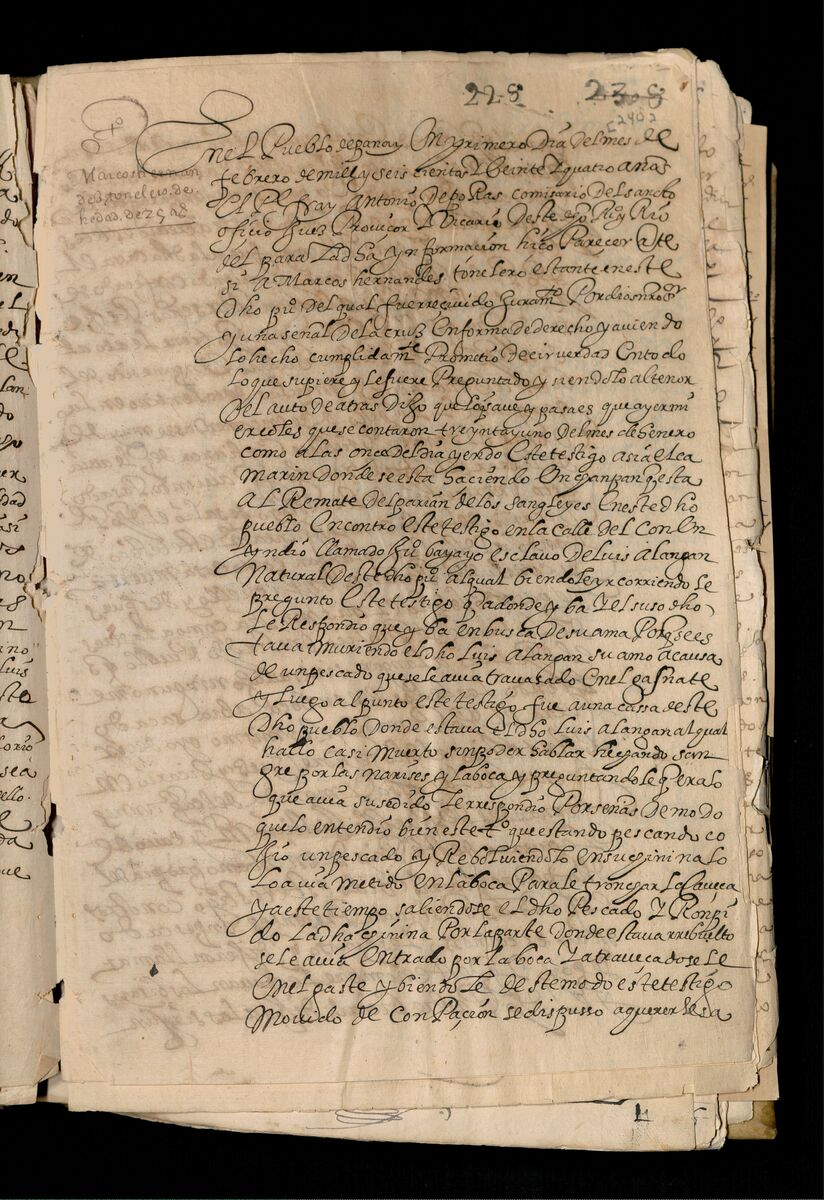 228 238
c2402
tº
Marcos hernan
des tonelero. de
hedad. de 25 aº
En el Pueblo de panay En primero Dia Del mes de
febrero de mill y seis cientos Y Beinte Y quatro años
El Pe fray Antonio De porras comisario Del sancto
oficio Juez Provisor Y Vicario Deste dho Rio
del para La dha ynformacion hiço Parecer Ante
si A Marcos hernandes tonelero estante en este
Dho puº Del qual fue rreçivido Juramto Por dios nro sr
y una señal De la cruz En forma de derecho y aviendo
lo hecho cumplidamte Prometio Decir verdad En todo
lo que supiere y le fuere Preguntado y siendolo al tenor
Del auto De atras Dixo que lo que save y pasa es que ayer mi
ercoles que se contaron treynta y uno Del mes de henero
como a las once del dia yendo Este testigo asia el ca
marin Donde se esta haciendo
Al Remate Del parian de los sangleyes En este dho
pueblo Encontro Este testigo en la calle Del con Un
yndio llamado Juº bayayo esclavo De luis alangan
Natural Deste dho puº al qual biendo le yr corriendo le
pregunto Este testigo q adonde yba Y el suso dho
Le Respondio que yba en busca De su ama Porq se es
tava Muriendo el Dho Luis Alangan su amo a causa
de un pescado que se le avia travasado En el gasnate
y luego al punto este testigo fue a una cassa deste
Dho pueblo Donde estava El Dho Luis alangan al qual
hallo casi Muerto sin poder hablar hechando san
gre por las narises y la boca y preguntandole q era lo
que avia susedido le rrespondio Por señas De modo
que lo entendio bien este tº que estando pescando co
Jio un pescado y Rebolviendolo en su pinina lo
lo avia metido en la boca Para le tronchar la Caveça
y a este tiempo saliendose el Dho Pescado Y Ronpi
do La dha pinina Por la parte donde estava rrebuelto
se le avia Entrado por la boca Y atravecadosele
En el gaste y biendole deste modo este testigo
Movido de conPacion se dispusso a quererle sa